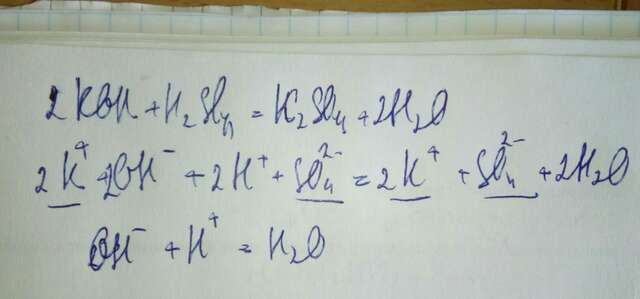 2KOH + H₂SO₄ = K₂SO₄ + 2H₂O
2K⁺ + 2OH⁻ + 2H⁺ + SO₄²⁻ = 2K⁺ + SO₄²⁻ + 2H₂O
OH⁻ + H⁺ = H₂O